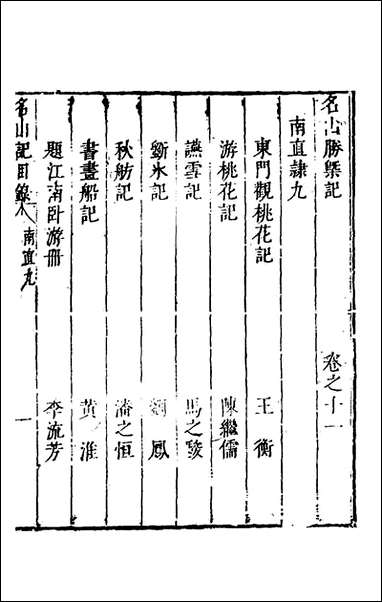 名山勝槩記 卷之十一
南直隷九
東門觀桃花記 王衡
游桃花記 陳繼儒
讌雪記 馬之駿
氷記 鳳
秋舫記 潘之恒
書畫船記 黄淮
題江南卧游冊 李流芳
名山記目錄 南直九 一